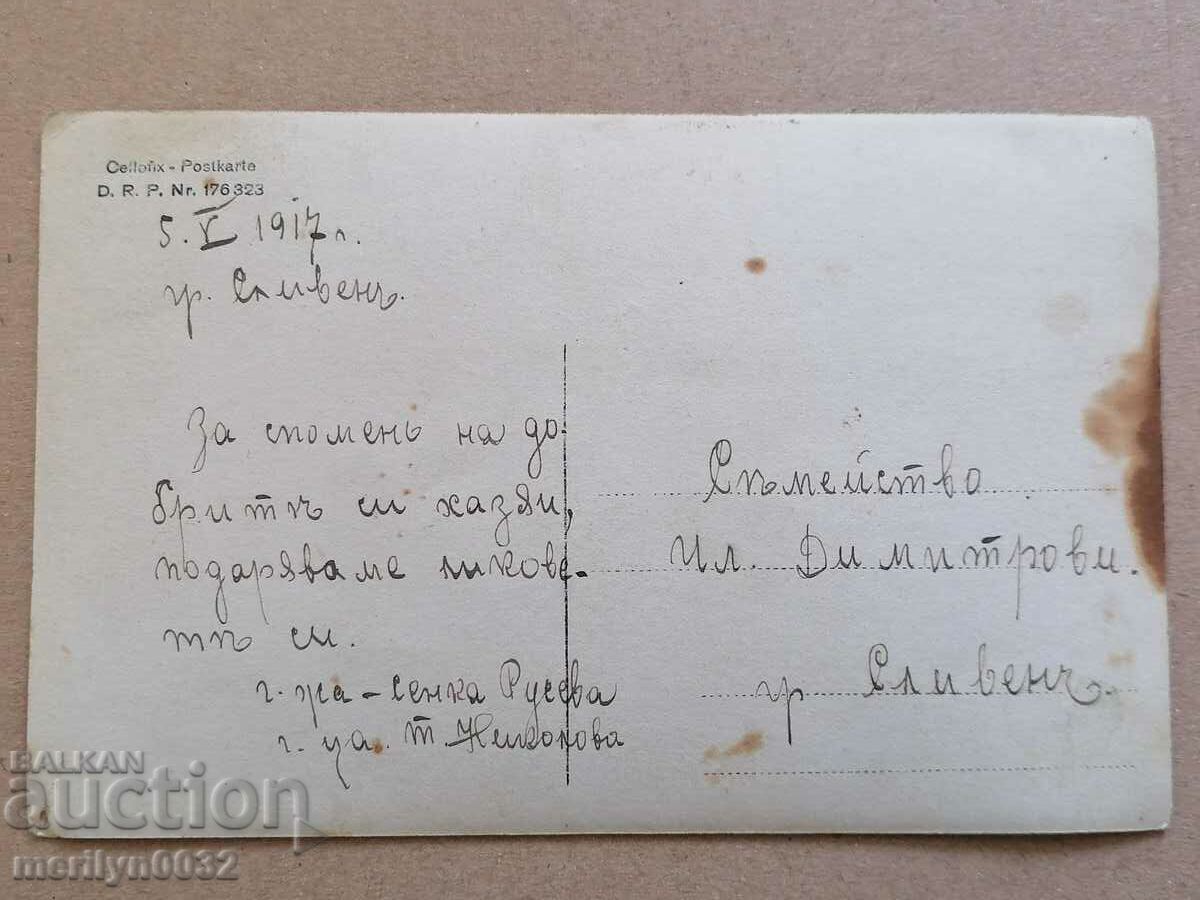 Cellofix - Postkarte
D. R. P. Nr. 176323
5. V 1917 г.
гр. Сливенъ.
За споменъ на до-
бритѣ си хазяи,
подаряваме ликове-
тѣ си.
г. жа - Сенка Русева
г. ца. Т. Николова
Съмейство
Ил. Димитрови.
гр Сливенъ.
BALKAN
auction
merilyn0032